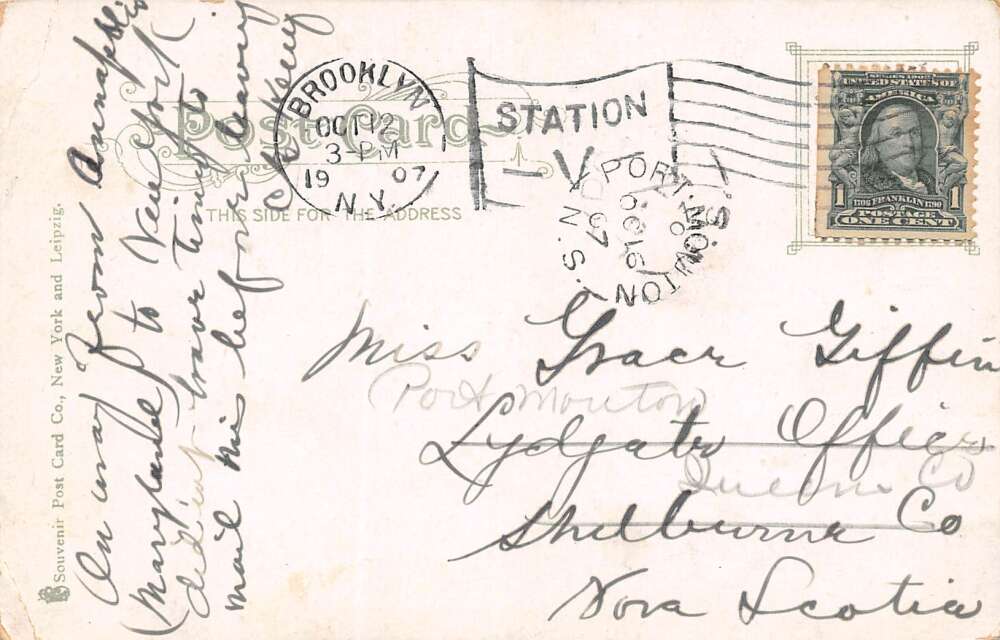 Post Card
THIS SIDE FOR THE ADDRESS
BROOKLYN
OCT 12
3-PM
19 07
N.Y.
STATION
V
PORT MOUTON
OC 16
07
N.S.
SERIES 1902
UNITED STATES OF
AMERICA
1 1
1706 FRANKLIN 1790
POSTAGE
ONE CENT
Miss Grace Giffin
Port Mouton
Lydgate Office
Queens Co
Shelburne Co
Nova Scotia
On way from Annapolis
(Maryland) to New York
did not have time to
mail this before leaving
Souvenir Post Card Co., New York and Leipzig.